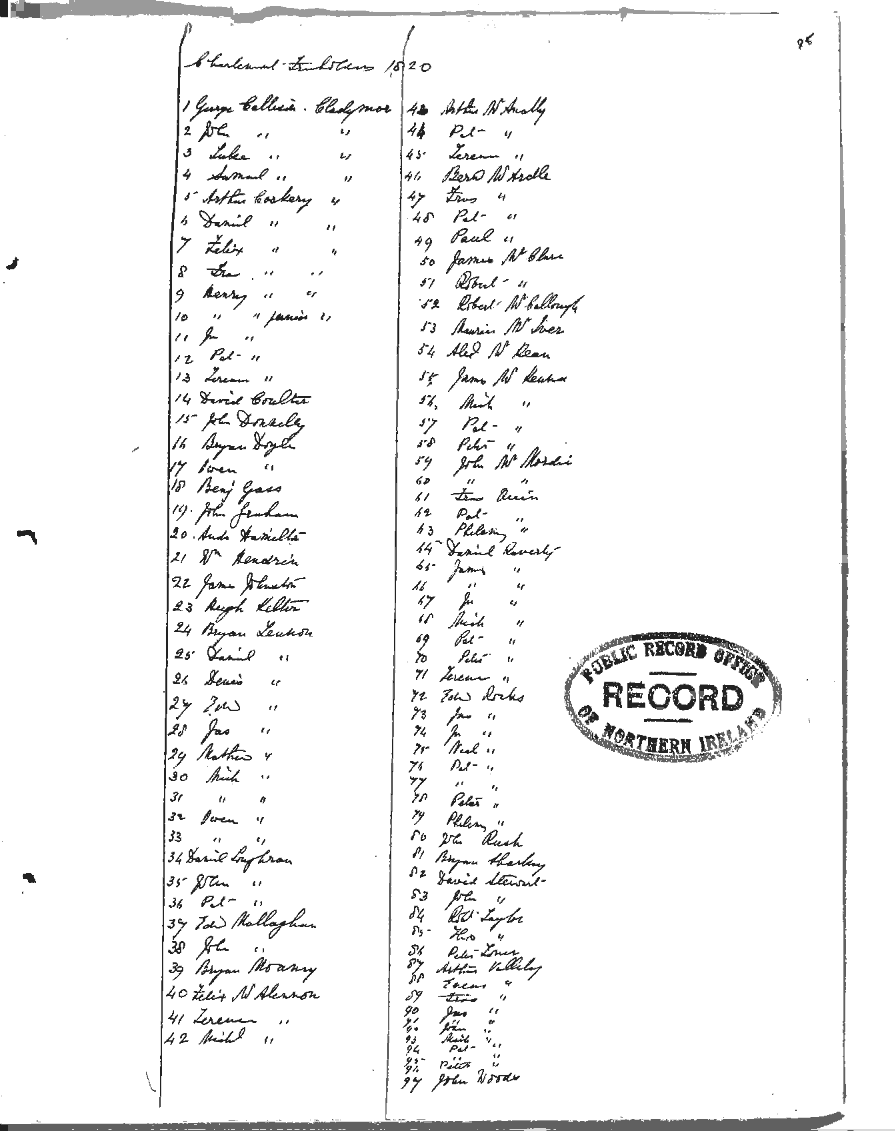 98
Charlemont Freeholders 1820
1 George Callisin. Cladymor
2 John " "
3 Luke " "
4 Samuel " "
5 Arthur Corkery "
6 Daniel " "
7 Felix " "
8 Fra. " "
9 Henry " "
10 " " junior "
11 Jn "
12 Pat "
13 Terence "
14 David Coulter
15 John Donnelly
16 Bryan Doyle
17 Owen "
18 Benj Gass
19. John Graham
20. Andw Hamilton
21 Wm Hendrin
22 James Johnston
23 Hugh Kelton
24 Bryan Lennon
25 Daniel "
26 Denis "
27 Edw "
28 Jas "
29 Mathew "
30 Mich "
31 " "
32 Owen "
33 " "
34 Daniel Loughran
35 John "
36 Pat "
37 Edw Mallaghan
38 John "
39 Bryan Moanry
40 Felix McAlennon
41 Terence "
42 Michl "
43 Arthur McAnally
44 Pat "
45 Terence "
46 Bernd McArdle
47 Fras "
48 Pat "
49 Paul "
50 James McClure
51 Robert "
52 Robert McCallough
53 Maurice McIver
54 Alexd McKean
55 James McKenna
56, Mich "
57 Pat "
58 Peter "
59 John McMordie
60 " "
61 Fras Quin
62 Pat "
63 Philemy "
64 Daniel Raverty
65 James "
66 " "
67 Jn "
68 Mich "
69 Pat "
70 Peter "
71 Terence "
72 Edw Rocks
73 Jas "
74 Jn "
75 Neal "
76 Pat "
77 " "
78 Peter "
79 Philemy "
80 John Rush
81 Bryan Sharkey
82 David Stewart
83 John "
84 Robt Taylor
85 Thos "
86 Peter Toner
87 Arthur Vallely
88 "
89 Fras "
90 Jas "
91 " "
92 John "
93 Mich "
94 Pat "
95 " "
96 Peter "
97 John Woods
PUBLIC RECORD OFFICE
RECORD
OF NORTHERN IRELAND